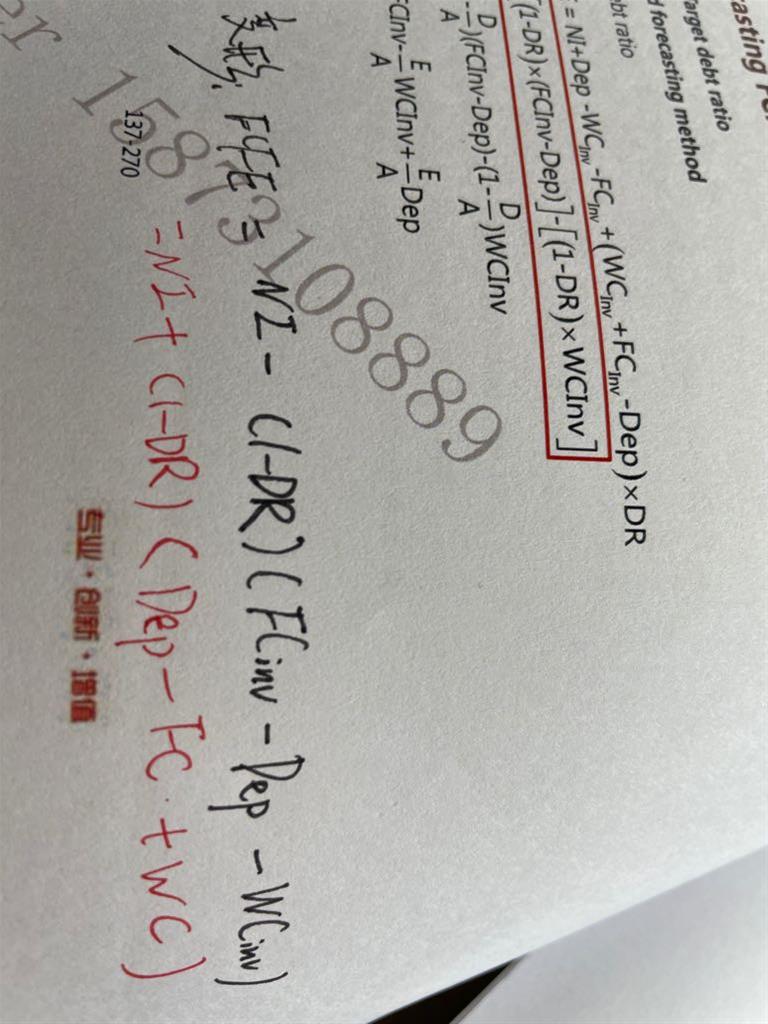 asting
arget debt ratio
forecasting method
bt ratio
= NI+Dep -WCInv -FCInv +(WCInv +FCInv -Dep)×DR
(1-DR)×(FCInv-Dep)]-[(1-DR)×WCInv]
-D/A)(FCInv-Dep)-(1-D/A)WCInv
FCInv-E/A WCInv+E/A Dep
变形, FCFE = NI - (1-DR)(FCinv - Dep - WCinv)
= NI + (1-DR)(Dep - FC + WC)
137-270
15873108889
专业·创新·增值